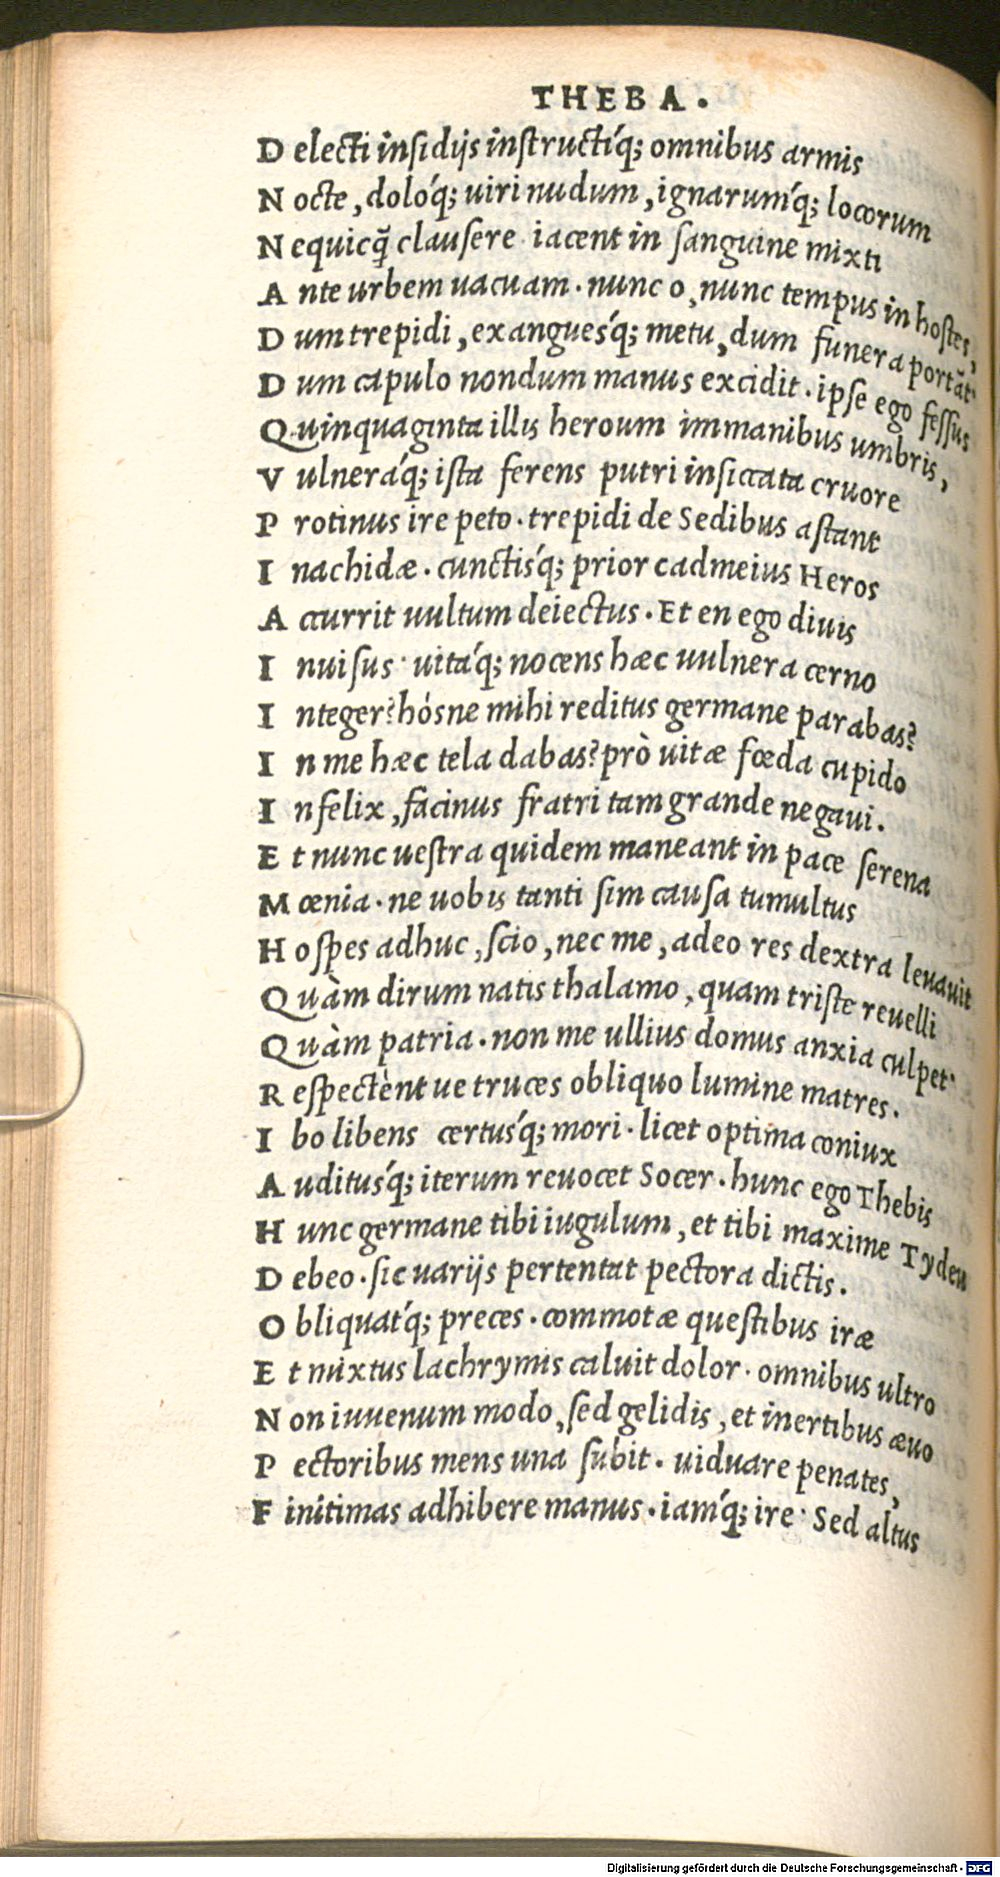 THEBA.
D electi insidijs instructíq; omnibus armis
N octe, dolóq; uiri nudum, ignarumq́; locorum
N equicq̃ clausere· iacent in sanguine mixti
A nte urbem uacuam. nunc o, nunc tempus in hostes,
D um trepidi, exanguesq́; metu, dum funera portãt·
D um capulo nondum manus excidit. ipse ego fessus
Q uinquaginta illis heroum immanibus umbris,
V ulneraq́; ista ferens putri insiccata cruore
P rotinus ire peto. trepidi de Sedibus astant
I nachidæ. cunctisq́; prior cadmeius Heros
A ccurrit uultum deiectus. Et en ego diuis
I nuisus· uitaq́; nocens hæc uulnera cerno
I nteger? hósne mihi reditus germane parabas?
I n me hæc tela dabas? prò uitæ fœda cupido
I nfelix, facinus fratri tam grande negaui.
E t nunc uestra quidem maneant in pace serena
M œnia. ne uobis tanti sim causa tumultus
H ospes adhuc, scio, nec me, adeo res dextra leuauit
Q uàm dirum natis thalamo, quam triste reuelli
Q uàm patria. non me ullius domus anxia culpet·
R espectènt ue truces obliquo lumine matres.
I bo libens certusq́; mori. licet optima coniux
A uditusq́; iterum reuocet Socer. hunc ego Thebis
H unc germane tibi iugulum, et tibi maxime Tydeu
D ebeo. sic uarijs pertentat pectora dictis.
O bliquatq́; preces. commotæ questibus iræ
E t mixtus lachrymis caluit dolor. omnibus ultro
N on iuuenum modo, sed gelidis, et inertibus æuo
P ectoribus mens una subit. uiduare penates,
F initimas adhibere manus. iamq́; ire· Sed altus
Digitalisierung gefördert durch die Deutsche Forschungsgemeinschaft - DFG